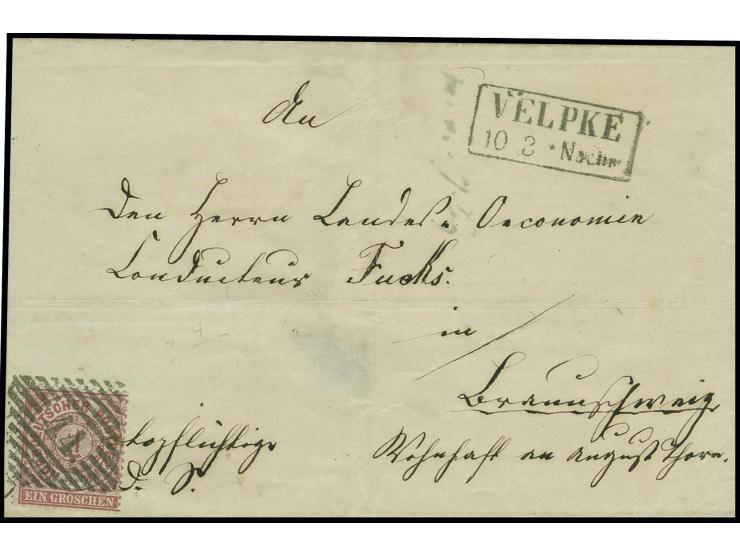 An
VELPKE
10 3 * Nachm
den Herrn Landes-Oeconomie
Conducteur Fucks.
in
Braunschweig
Wohnhaft am August Thore.
topflichtige
d. S.
EIN GROSCHEN